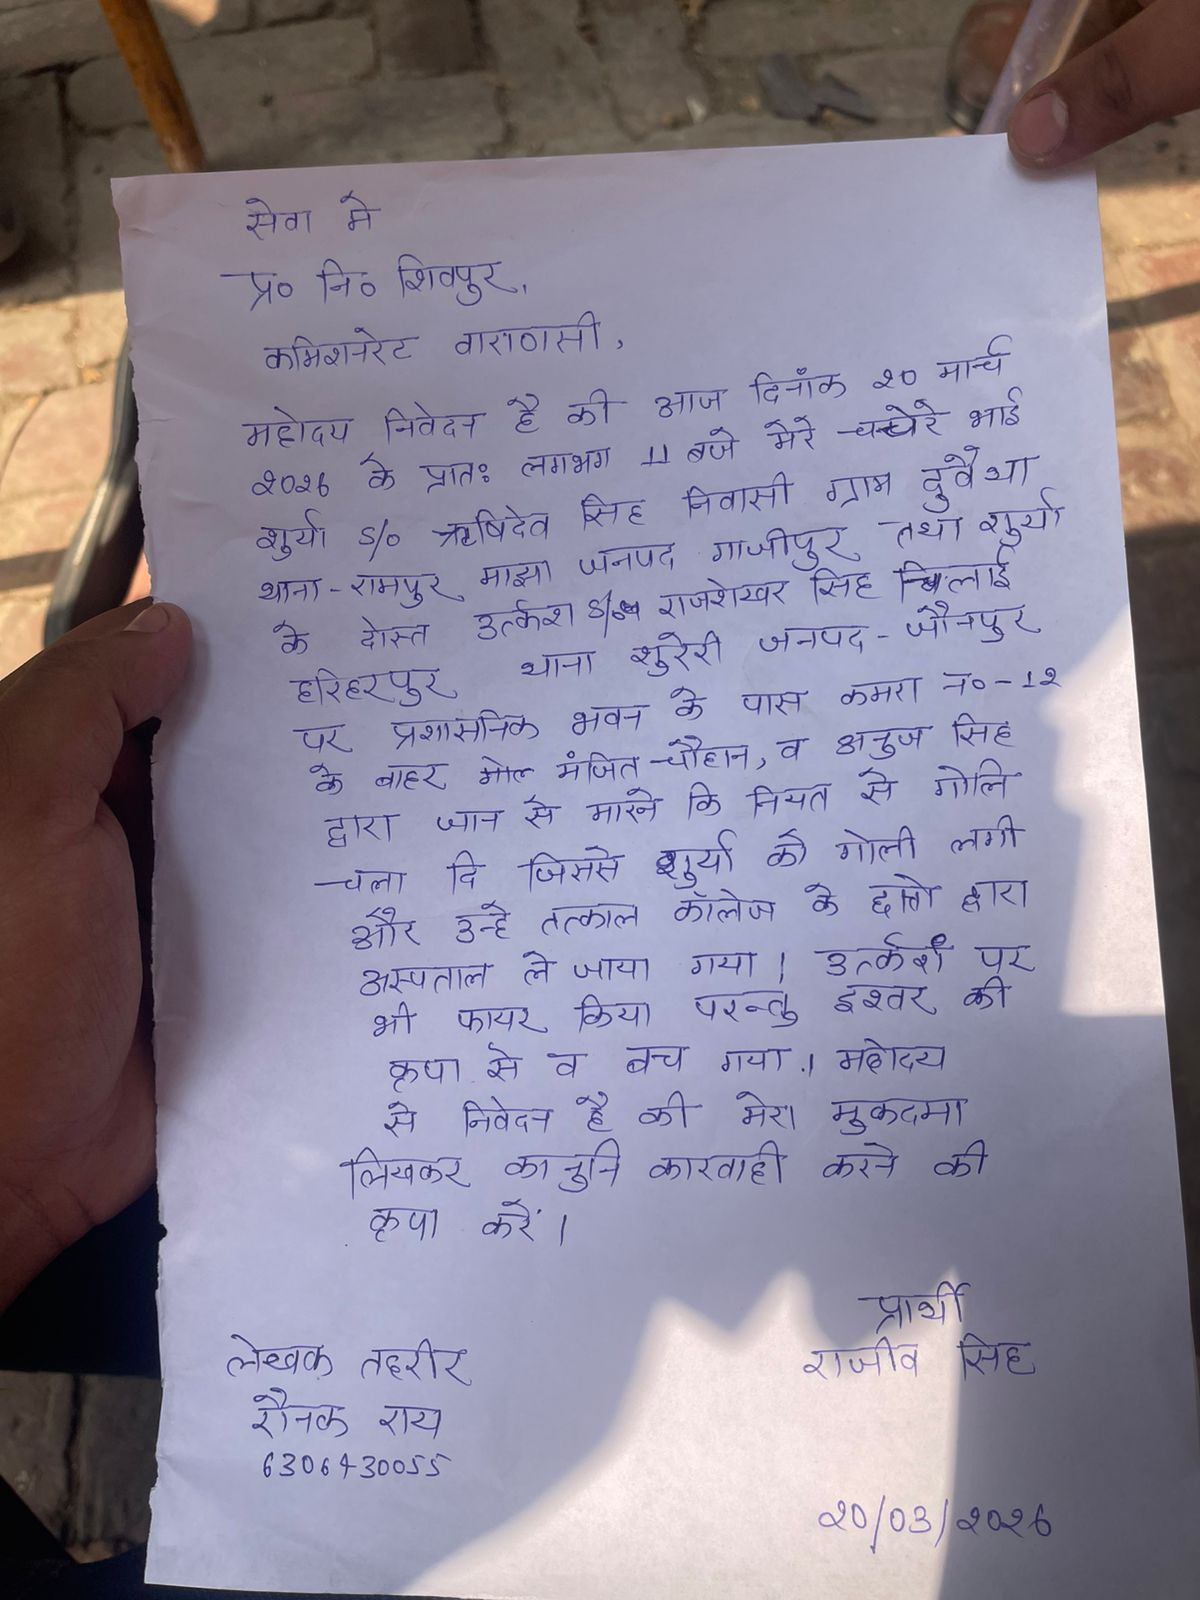 सेवा मे
प्र० नि० शिवपुर,
कमिशनरेट वाराणसी,
महोदय निवेदन है की आज दिनाँक २० मार्च
२०२६ के प्रातः लगभग 11 बजे मेरे चचेरे भाई
शुर्या S/० ऋषिदेव सिंह निवासी ग्राम दुवैथा
थाना - रामपुर माझा जनपद गाजीपुर तथा शुर्या
के दोस्त उर्त्कश S/० राजशेखर सिंह भिलाई
हरिहरपुर थाना शुरेरी जनपद - जौनपुर
पर प्रशासनिक भवन के पास कमरा न० - 1२
के बाहर मंजित चौहान, व अनुज सिंह
द्वारा जान से मारने कि नियत से गोलि
चला दि जिससे शुर्या को गोली लगी
और उन्हे तत्काल कॉलेज के छात्रो द्वारा
अस्पताल ले जाया गया। उर्त्कश पर
भी फायर किया परन्तु इश्वर की
कृपा से व बच गया। महोदय
से निवेदन है की मेरा मुकदमा
लिखकर कानुनि कारवाही करने की
कृपा करें।
प्रार्थी
राजीव सिंह
लेखक तहरीर
रौनक राय
6306430055
२०/०3/२०२६